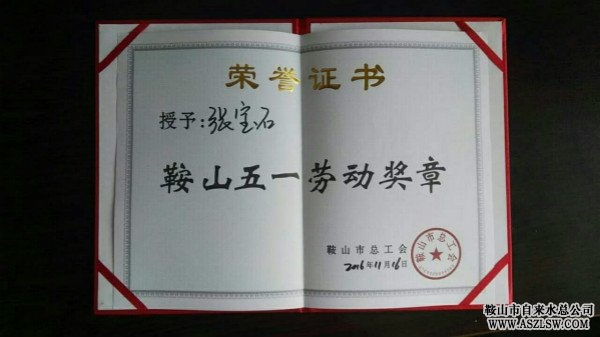 荣誉证书
授予：张宝石
鞍山五一劳动奖章
鞍山市总工会
2016年11月16日
鞍山市总工会
鞍山市自来水总公司
WWW.ASZLSW.COM